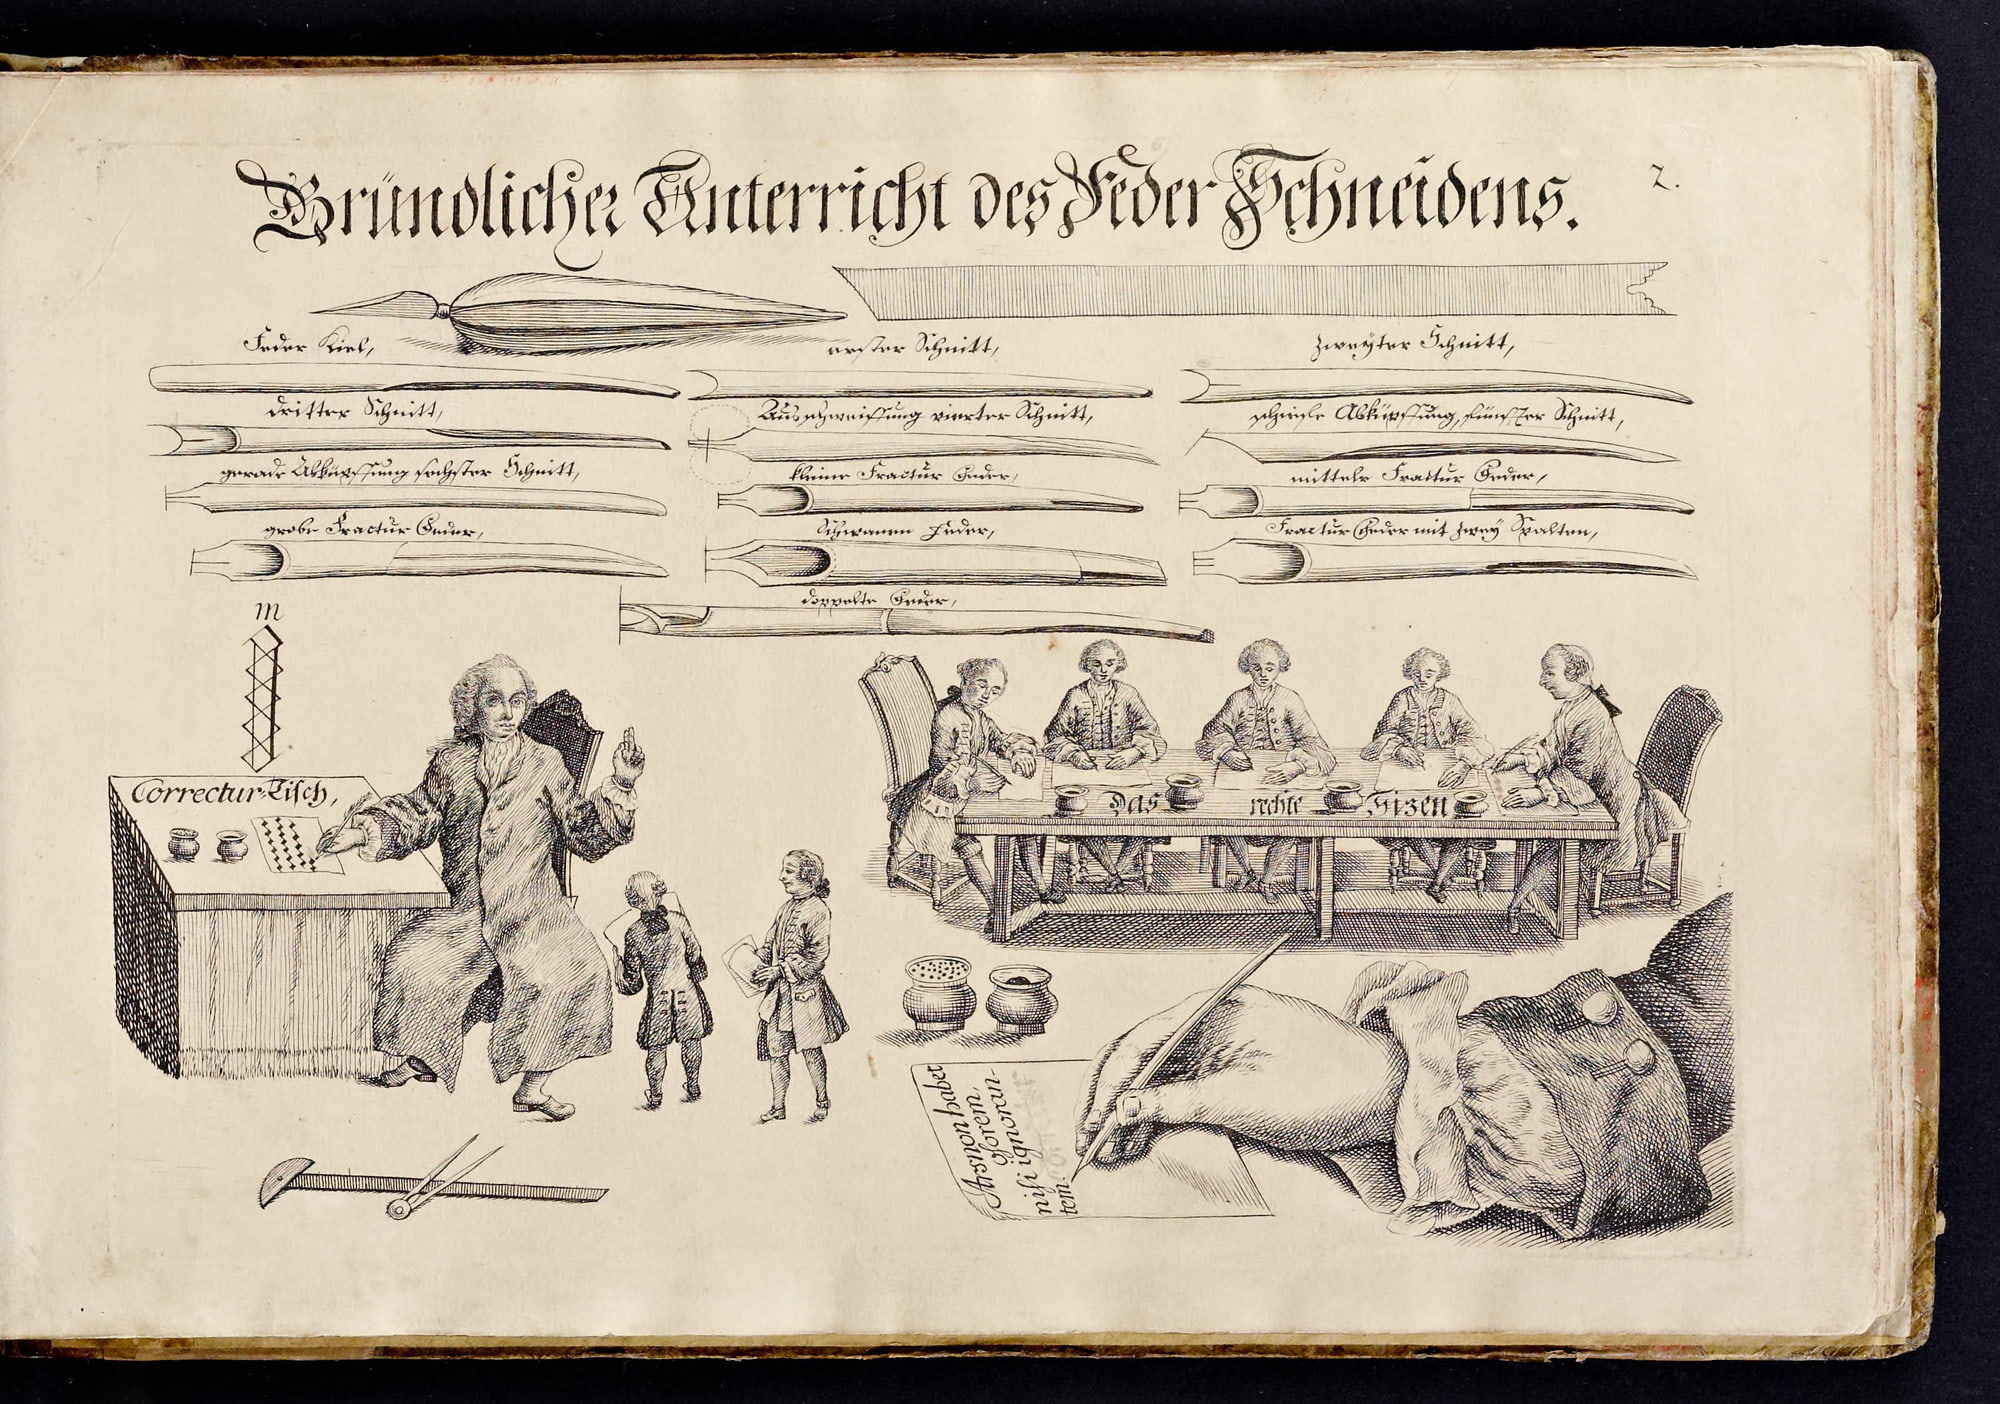 Gründlicher Unterricht des Feder Schneidens.
2.
Feder Kiel,
erster Schnitt,
zweÿter Schnitt,
dritter Schnitt,
Ausschweiffung vierter Schnitt,
schiefe Abküpffung, fünfter Schnitt,
gerade Abküpffung sechster Schnitt,
kleine Fractur Feder,
mittele Fractur Feder,
grobe Fractur Feder,
Schwanen Feder,
Fractur Feder mit zweÿ Spalten,
doppelte Feder,
m
Correctur-Tisch,
Das rechte Sizen
Ars non habet
osorem,
nisi ignoran-
tem.